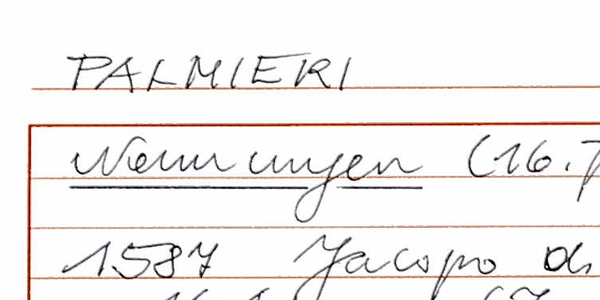 PALMIERI
Nennungen (16.
1587 Jacopo di